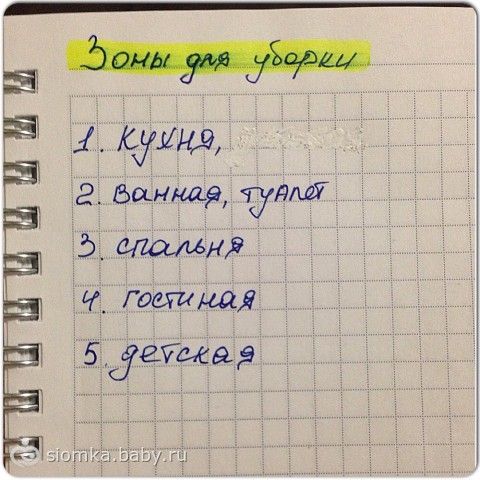 Зоны для уборки
1. Кухня,
2. Ванная, туалет
3. спальня
4. гостиная
5. детская
siomka.baby.ru